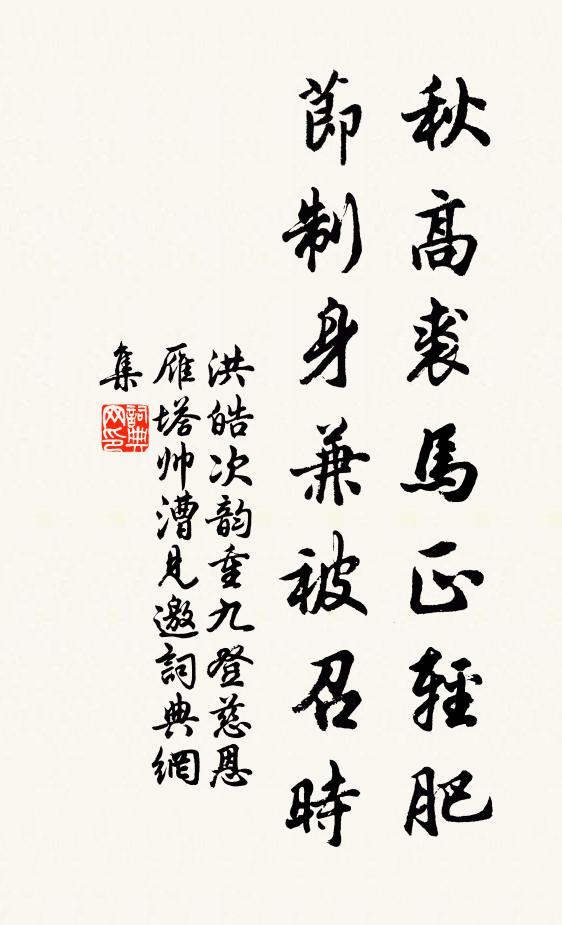 秋高裘馬正輕肥
節制身兼被召時
洪皓次韵重九登慈恩
雁塔帅漕見邀詞典網
集
詞典网印